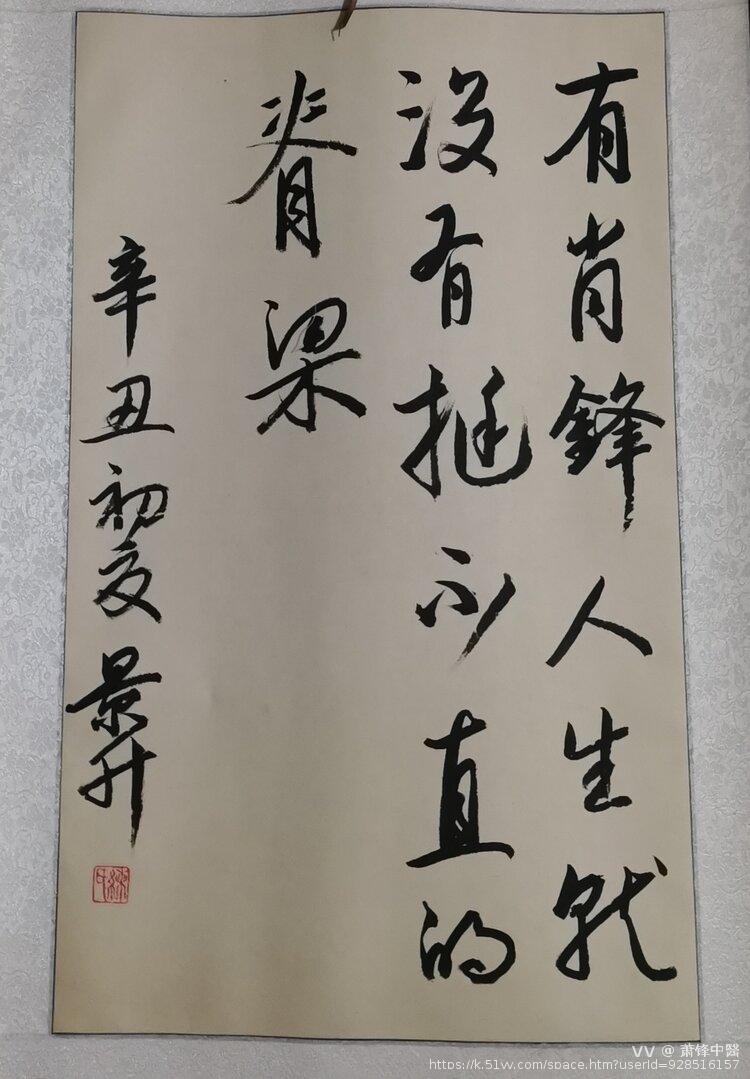 有肖鋒人生就
没有挺不直的
脊梁
辛丑初夏景升
VV @ 蕭锋中醫
https://k.51vv.com/space.htm?userId=928516157